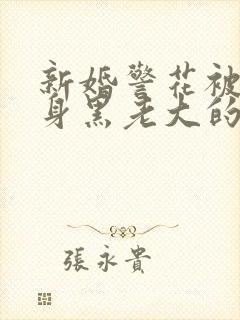 新婚警花被
身黑老大的
張永貴